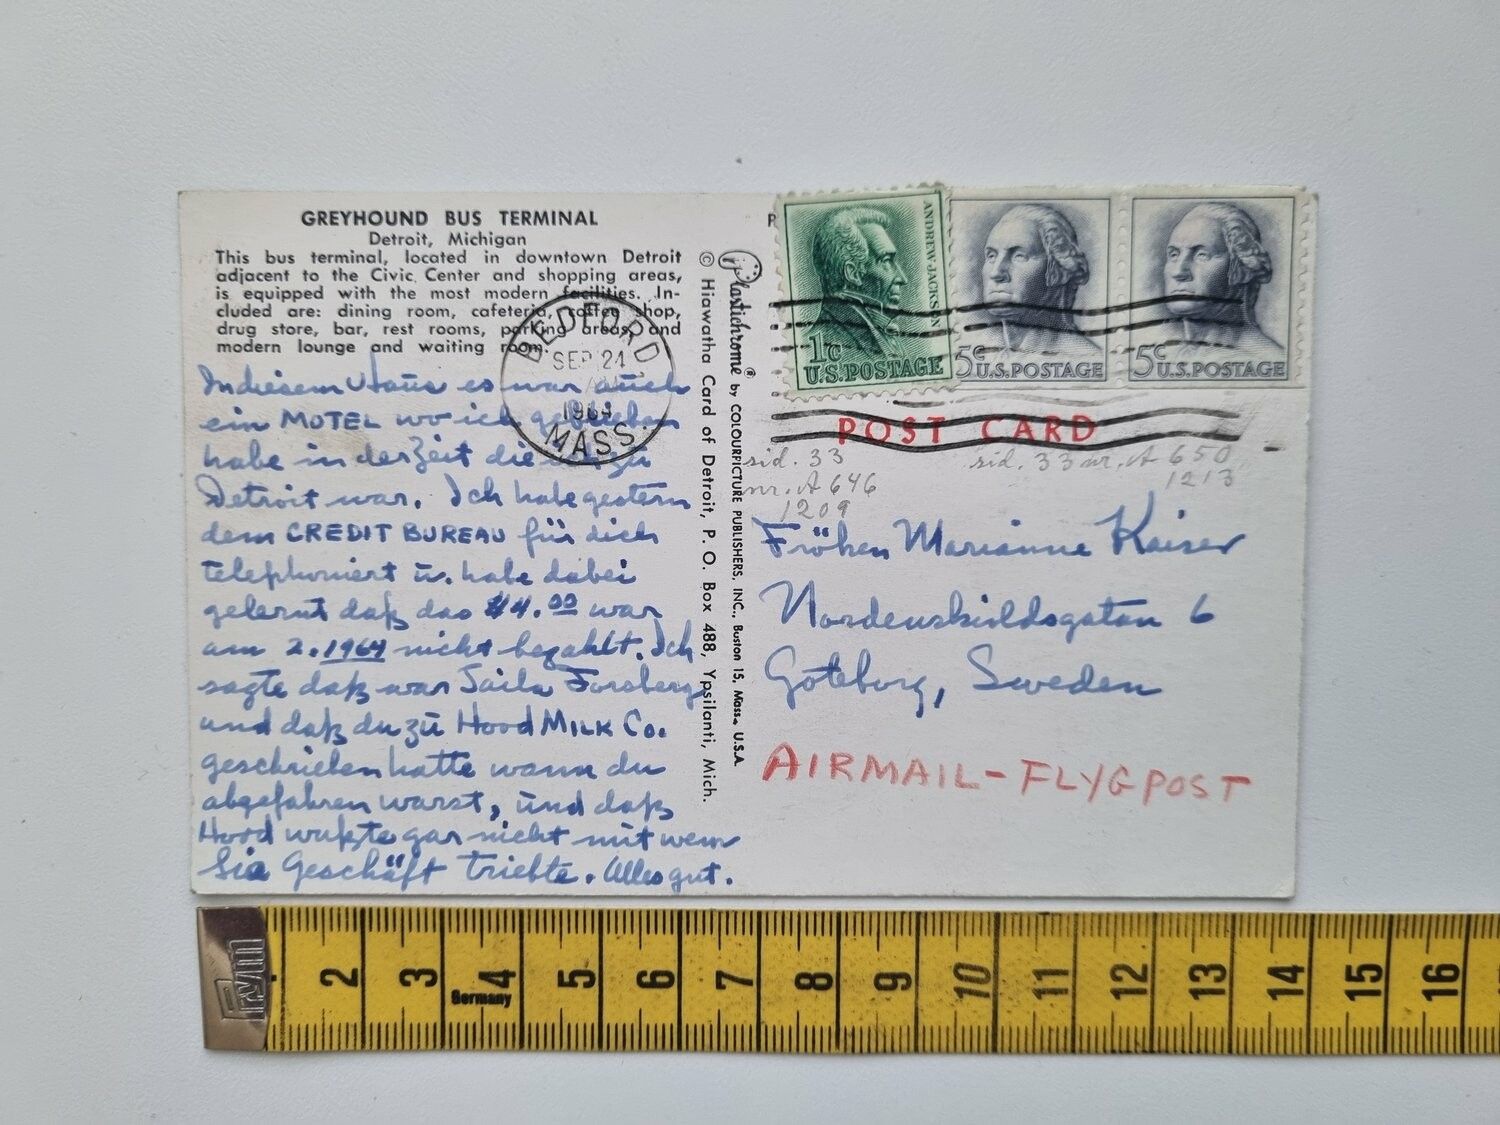 GREYHOUND BUS TERMINAL
Detroit, Michigan
This bus terminal, located in downtown Detroit
adjacent to the Civic Center and shopping areas,
is equipped with the most modern facilities. In-
cluded are: dining room, cafeteria, coffee shop,
drug store, bar, rest rooms, parking areas, and
modern lounge and waiting room.
In diesem Haus es war auch
ein MOTEL wo ich geblieben
habe in der Zeit die ich zu
Detroit war. Ich habe gestern
dem CREDIT BUREAU für dich
telephoniert u. habe dabei
gelernt daß das $4.00 war
am 2. 1964 nicht bezahlt. Ich
sagte daß war Saila Forsberg
und daß du zu Hood MILK Co.
geschrieben hatte wann du
abgefahren warst, und daß
Hood wußte gar nicht mit wem
Sie Geschäft triebte. Alles gut.
BEDFORD
SEP 24
1964
MASS.
© Hiawatha Card of Detroit, P. O. Box 488, Ypsilanti, Mich.
Plastichrome® by COLOURPICTURE PUBLISHERS, INC., Boston 15, Mass., U.S.A.
ANDREW JACKSON
1c
U.S. POSTAGE
5c U.S. POSTAGE
5c U.S. POSTAGE
POST CARD
sid. 33
nr. A 646
1209
sid. 33 nr. A 650
1213
Fröken Marianne Kaiser
Nordenskioldsgatan 6
Goteborg, Sweden
AIRMAIL-FLYGPOST
2 3 4 5 6 7 8 9 10 11 12 13 14 15 16
Germany